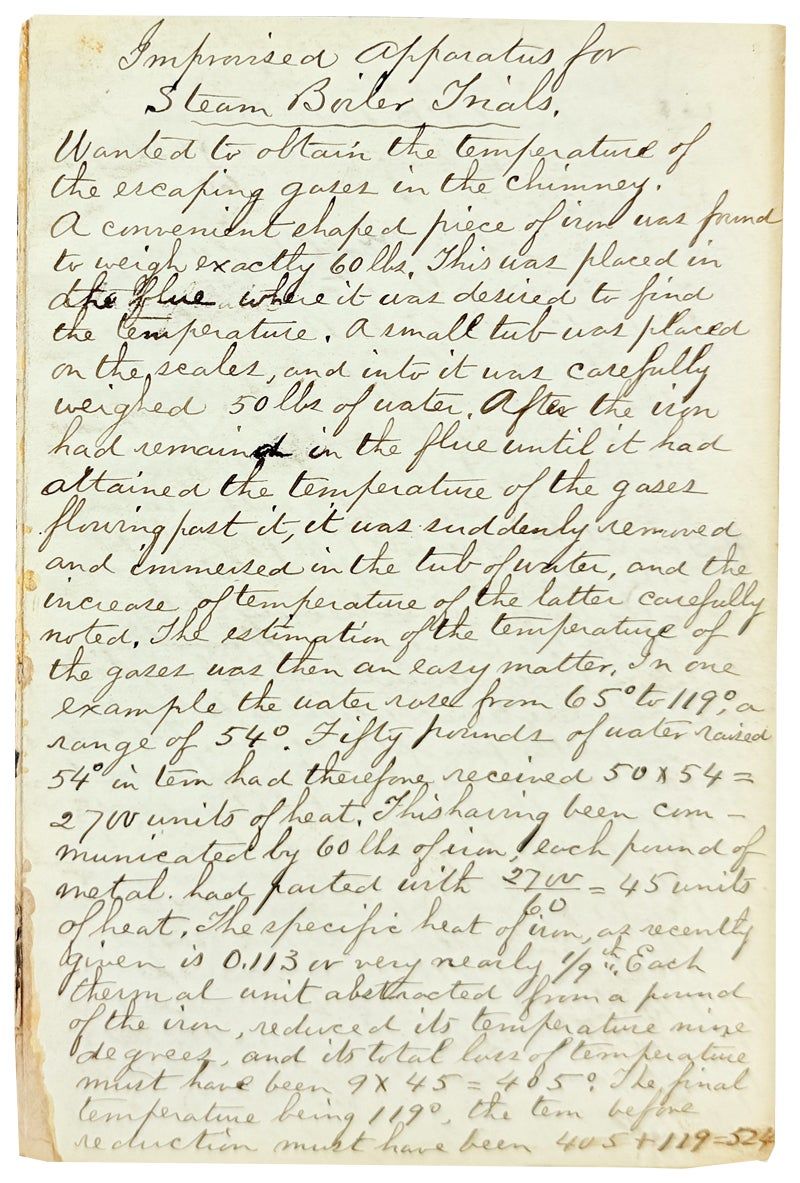 Improvised Apparatus for
Steam Boiler Trials.
Wanted to obtain the temperature of
the escaping gases in the chimney.
A convenient shaped piece of iron was found
to weigh exactly 60 lbs. This was placed in
the flue where it was desired to find
the temperature. A small tub was placed
on the scales, and into it was carefully
weighed 50 lbs of water. After the iron
had remaind in the flue until it had
attained the temperature of the gases
flowing past it, it was suddenly removed
and immersed in the tub of water, and the
increase of temperature of the latter carefully
noted. The estimation of the temperature of
the gases was then an easy matter. In one
example the water rose from 65° to 119°, a
range of 54°. Fifty pounds of water raised
54° in tem had therefore received 50 x 54 =
2700 units of heat. This having been com-
municated by 60 lbs of iron, each pound of
metal. had parted with 2700/60 = 45 units
of heat. The specific heat of iron, as recently
given is 0.113 or very nearly 1/9th. Each
thermal unit abstracted from a pound
of the iron, reduced its temperature nine
degrees, and its total loss of temperature
must have been 9 x 45 = 405°. The final
temperature being 119°, the tem before
reduction must have been 405 + 119 = 524